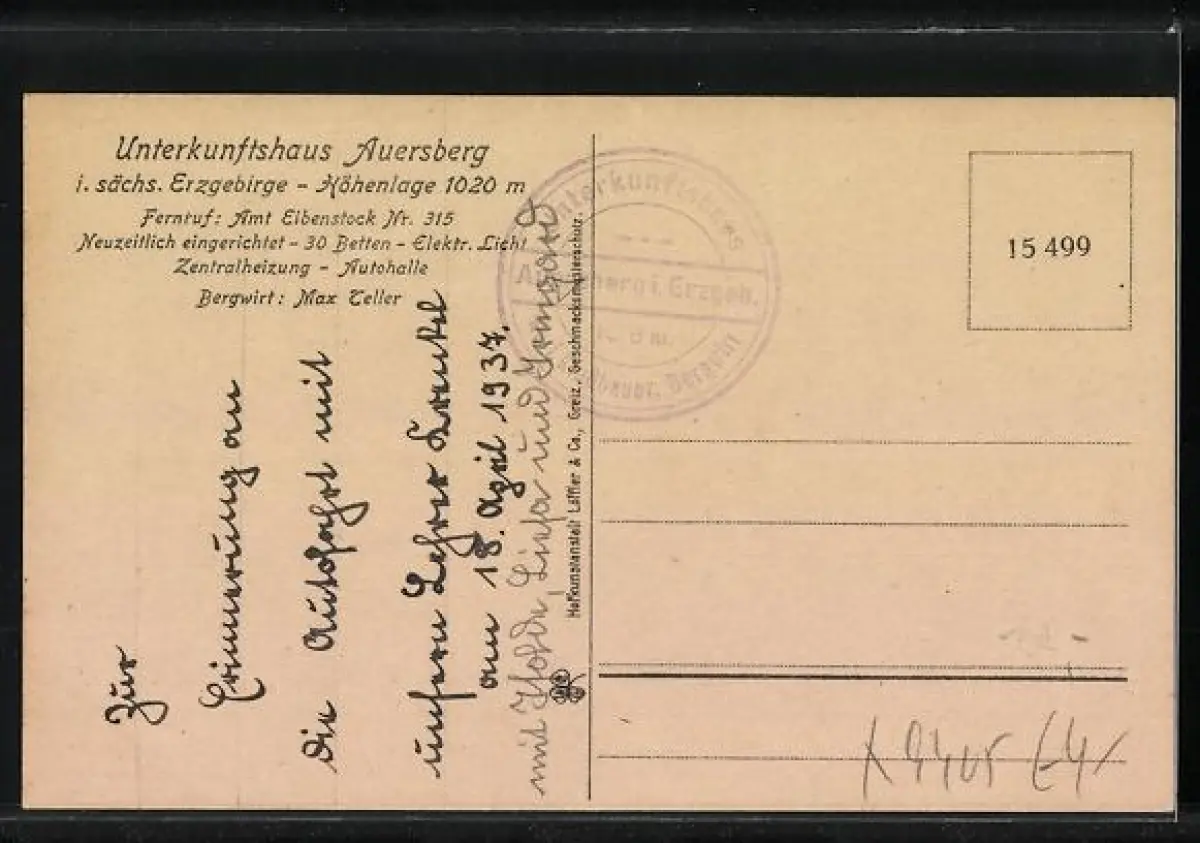 Unterkunftshaus Auersberg
i. sächs. Erzgebirge - Höhenlage 1020 m
Fernruf: Amt Eibenstock Nr. 315
Neuzeitlich eingerichtet - 30 Betten - Elektr. Licht
Zentralheizung - Autohalle
Bergwirt: Max Teller
Zur
Erinnerung an
die Autofahrt mit
unsern Lehrer
am 18. April 1937.
mit Isolde, Liesa und Irmgard
Hofkunstanstalt Löffler & Co., Greiz. Geschmacksmusterschutz.
Unterkunftshaus
Auersberg i. Erzgeb.
Bergwirt
15 499